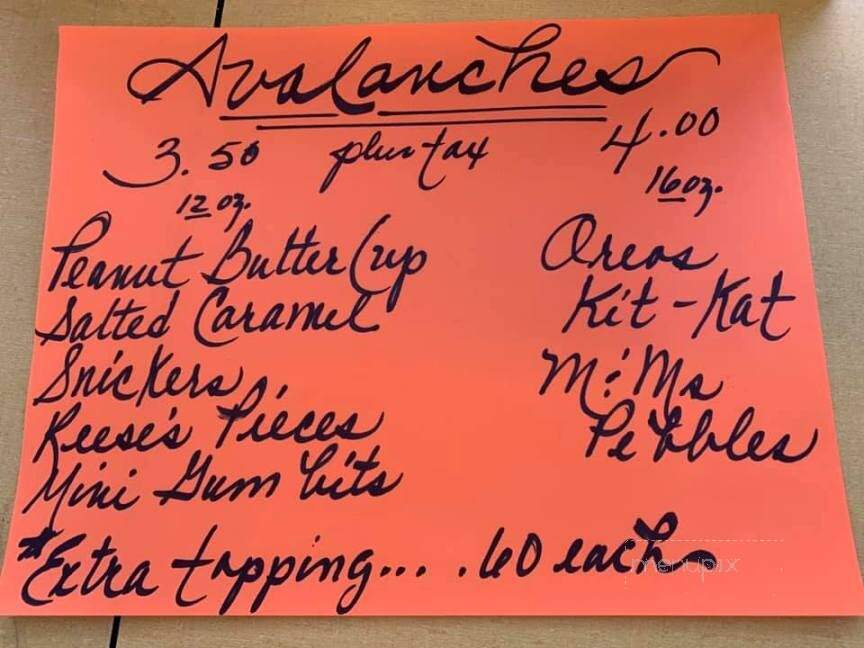 Avalanches
3.50 plus tax 4.00
12 oz. 16 oz.
Peanut Butter Cup
Salted Caramel
Snickers
Reese's Pieces
Mini Gum bits
Oreos
Kit-Kat
M&Ms
Pebbles
*Extra topping... .60 each
menupix